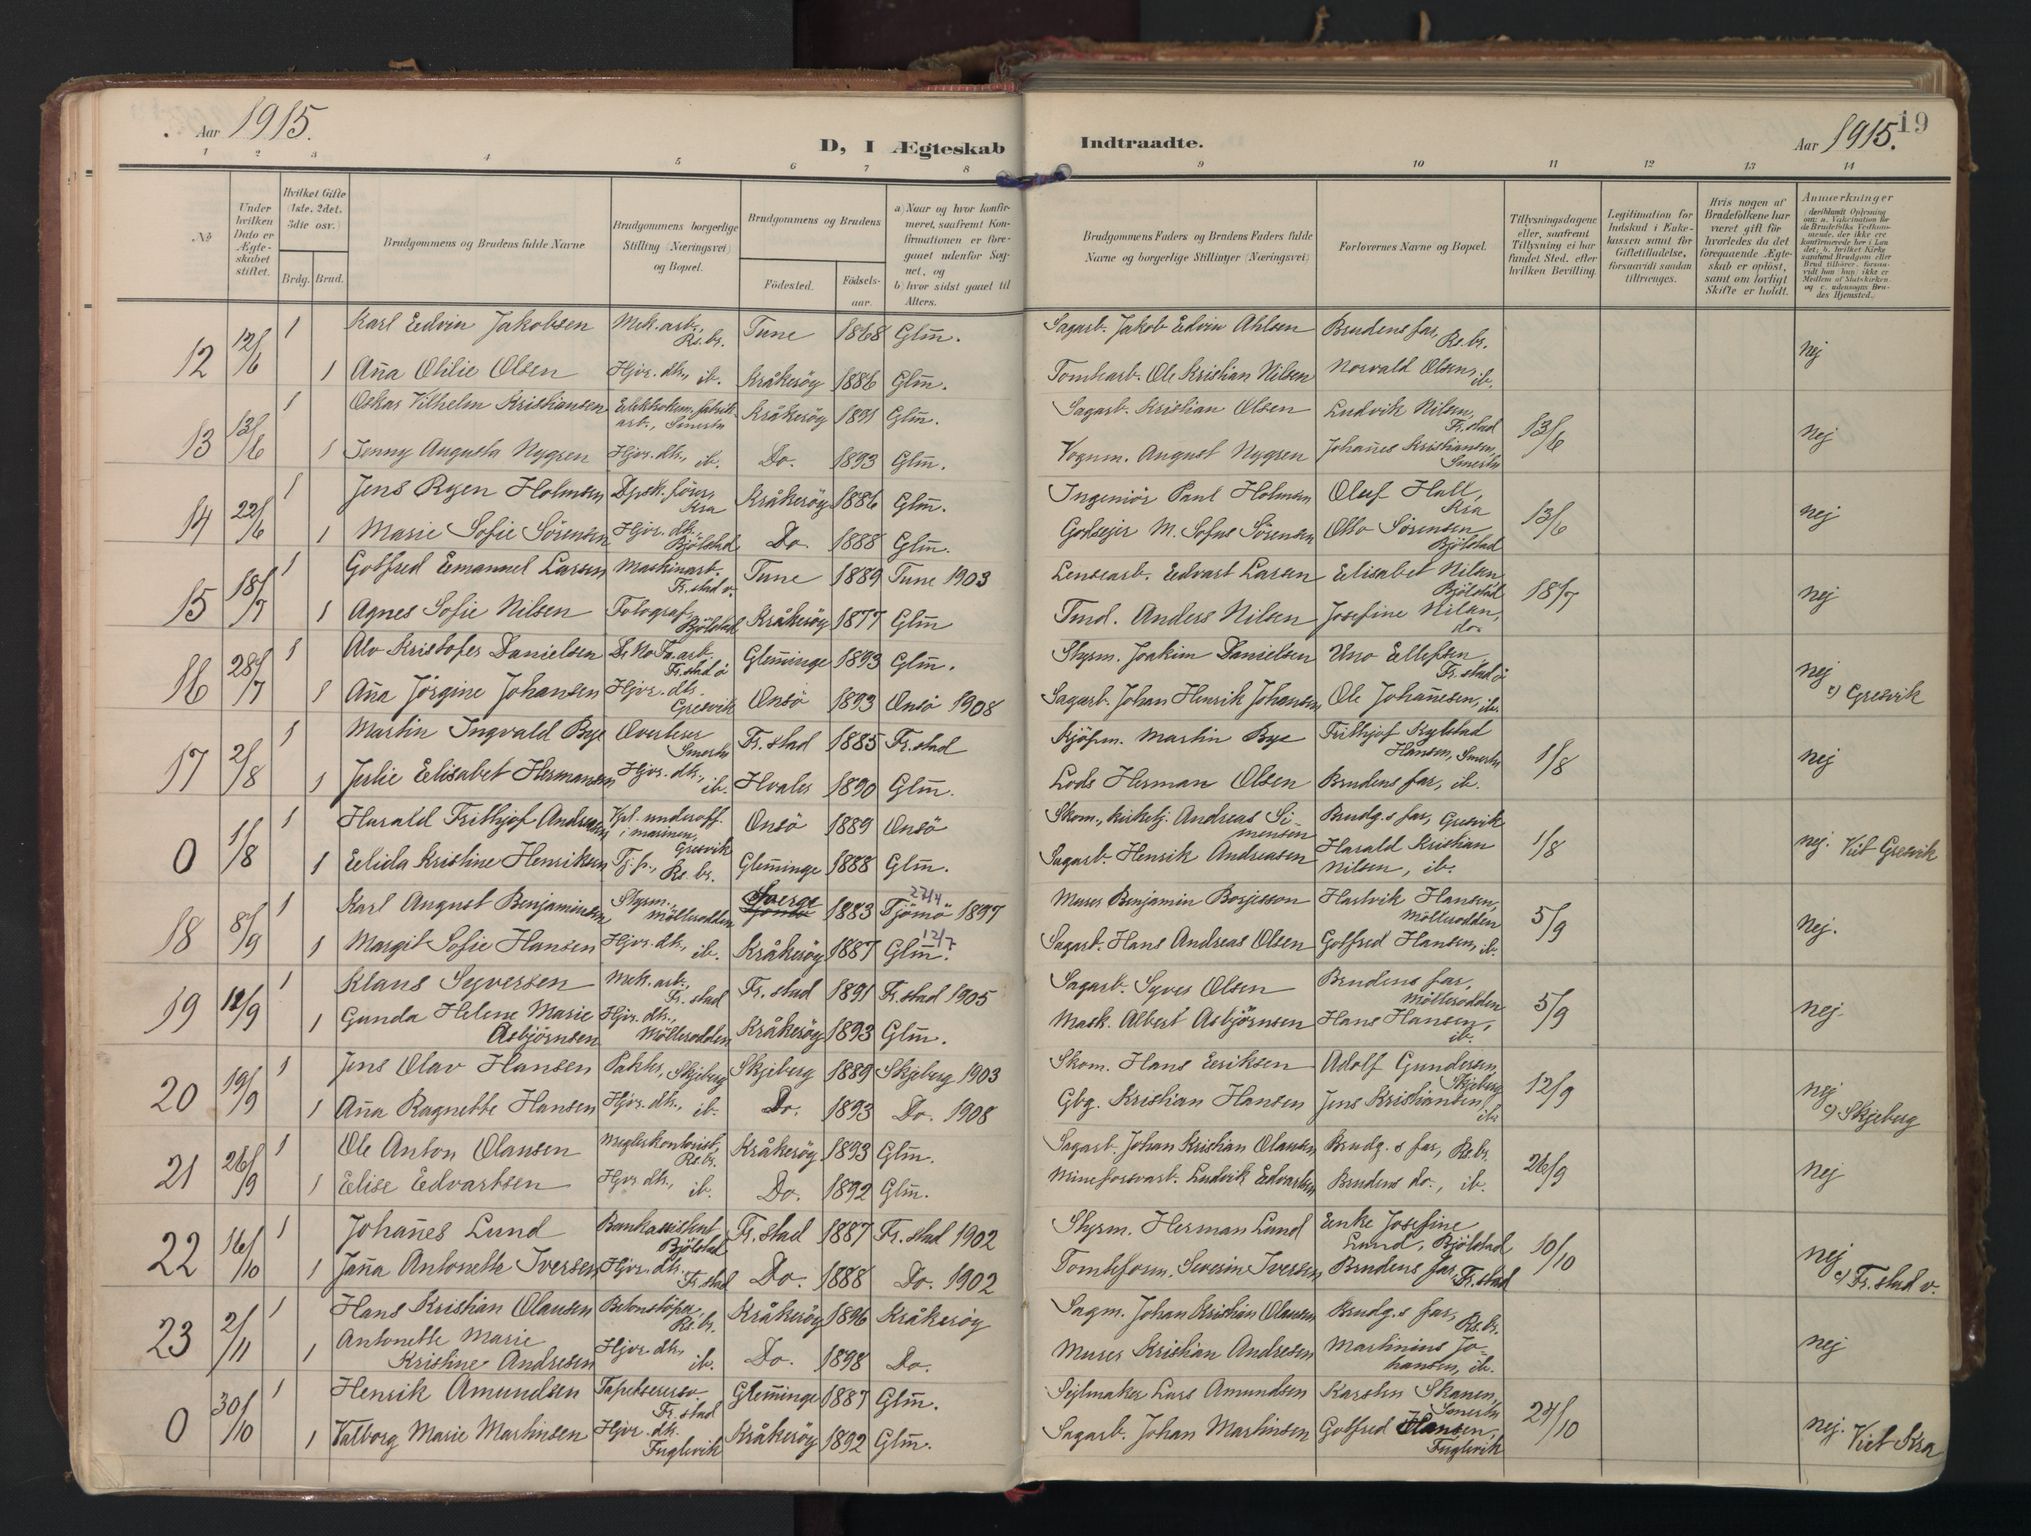 Aar 1915.
D, I Ægteskab Indtraadte.
19
Aar 1915.
1 2 3 4 5 6 7 8 9 10 11 12 13 14
№
Under hvilken Dato er Ægteskabet stiftet.
Hvilket Gifte (1ste, 2det, 3die osv.)
Brdg. Brud.
Brudgommens og Brudens fulde Navne
Brudgommens borgerlige Stilling (Næringsvei) og Bopæl.
Brudgommens og Brudens
Fødested.
Fødselsaar.
a) Naar og hvor konfirmeret, saafremt Konfirmationen er foregaaet udenfor Sognet, og
b) hvor sidst gaaet til Alters.
Brudgommens Faders og Brudens Faders fulde Navne og borgerlige Stillinger (Næringsvei)
Forlovernes Navne og Bopæl.
Tillysningsdagene eller, saafremt Tillysning ei har fundet Sted, efter hvilken Bevilling.
Legitimation for Indskud i Enkekassen samt for Giftetilladelse, forsaavidt saadan tiltrænges.
Hvis nogen af Brudefolkene har været gift før hvorledes da det foregaaende Ægteskab er opløst, samt om lovligt Skifte er holdt.
Anmærkninger
12 12/6 1 Karl Edvin Jakobsen Mek.arb., Rs.br. Tune 1868 Glm̄. Sagarb. Jakob Edvin Ahlsen Brudens far, Rs.br. nej
1 Anna Otilie Olsen Hjvr. dtr., ib. Kråkerøy 1886 Glm̄. Tomtearb. Ole Kristian Nilsen Norvald Olsen, ib.
13 13/6 1 Oskar Vilhelm Kristiansen Elektrokem. fabrikarb., Smertu Kråkerøy 1891 Glm̄. Sagarb. Kristian Olsen Ludvik Nilsen, Fr.stad 13/6 nej
1 Jenny Augusta Nygren Hjvr. dtr., ib. Do. 1893 Glm̄. Vognm. August Nygren Johan̄es Kristiansen, Smertu
14 22/6 1 Jens Ryen Holmsen Dpsk.fører, Kra Kråkerøy 1886 Glm̄. Ingeniør Paul Holmsen Oluf Hall, Kra 13/6 nej
1 Marie Sofie Sörensen Hjvr. dtr. Bjölstad Do. 1888 Glm̄. Godsejer M. Sofus Sörensen Otto Sörensen Bjölstad
15 18/7 1 Gotfred Emanuel Larsen Maskinarb. Fr.stad v. Tune 1889 Tune 1903 Lensearb. Edvart Larsen Elisabet Nilsen Bjölstad 18/7 nej
1 Agnes Sofie Nilsen Fotograf Bjölstad Kråkerøy 1877 Glm̄ Tmd. Anders Nilsen Josefine Nilsen, do.
16 28/7 1 Alv Kristofer Danielsen Fr.stad ö Glem̄inge 1893 Glm̄. Styrm. Joakim Danielsen Uno Ellefsen Fr.stad ö nej c) Gresvik
1 An̄a Jörgine Johansen Hjvr. dtr. Gresvik Onsö 1893 Onsö 1908 Sagarb. Johan Henrik Johansen Ole Johan̄esen, ib.
17 2/8 1 Martin Ingvald Bye Overlærer Smertu Fr.stad 1885 Fr.stad Kjöpm. Martin Bye Frithjof Rylstad Hansen, Smertu 1/8 nej
1 Julie Elisabet Hermansen Hjvr. dtr., ib. Hvaler 1890 Glm̄. Lods Herman Olsen Brudens far, ib.
0 1/8 1 Harald Frithjof Andresen Kpl. underoff. i marinen, Gresvik Onsö 1889 Onsö Skom., kirketj. Andreas Simensen Brudg.s far, Gresvik 1/8 nej. Viet Gresvik
1 Elida Kristine Henriksen Tj.p., Rs.br. Glem̄inge 1888 Glm̄. Sagarb. Henrik Andreasen Harald Kristian Nilsen, ib.
18 8/9 1 Karl August Benjaminsen Styrm., Möllerodden Sverge 1883 Tjömö 22/4 1897 Murer Benjamin Börjesson Hartvik Hansen, Möllerodden 5/9 Nej.
1 Margit Sofie Hansen Hjvr. dtr., ib. Kråkerøy 1887 Glm̄. 12/7 Sagarb. Hans Andreas Olsen Gotfred Hansen, ib.
19 12/9 1 Klaus Syversen Mek. arb., Fr.stad Fr.stad 1891 Fr.stad 1905 Sagarb. Syver Olsen Brudens far, Möllerodden 5/9 nej.
1 Gunda Helene Marie Asbjørnsen Hjvr. dtr., Möllerodden Kråkerøy 1893 Glm̄. Mask. Albert Asbjørnsen Hans Hansen, ib.
20 19/9 1 Jens Olav Hansen Pakter, Skjeberg Skjeberg 1889 Skjeberg 1903 Skom. Hans Eriksen Adolf Gundersen Skjeberg 12/9 nej c) Skjeberg
1 An̄a Ragnette Hansen Hjvr. dtr., ib. Do. 1893 Do. 1908 Gbg. Kristian Hansen Jens Kristiansen, ib.
21 26/9 1 Ole Anton Olausen Meglerkontorist, Rs.br. Kråkerøy 1893 Glm̄. Sagarb. Johan Kristian Olausen Brudg.s far, Rs.br. 26/9 nej
1 Elise Edvartsen Hjvr dtr., ib. Do. 1892 Glm̄. Mineforsvarb. Ludvik Edvartsen Brudens do., ib.
22 16/10 1 Johan̄es Lund Bankassistent Bjölstad Fr.stad 1887 Fr.stad 1902 Styrm. Herman Lund Enke Josefine Lund, Bjölstad 10/10 nej c) Fr.stad v.
1 Jan̄a Antonette Iversen Hjvr. dtr. Fr.stad Do. 1888 Do. 1902 Tomteform. Severin Iversen Brudens far, Fr.stad
23 2/11 1 Hans Kristian Olausen Betonstöper Rs.br. Kråkerøy 1896 Kråkerøy Sagm. Johan Kristian Olausen Brudg.s far, Rs.br. nej
1 Antonette Marie Kristine Andresen Hjvr. dtr., ib. Do. 1898 Do. Murer Kristian Andresen Martinius Johansen, ib.
0 30/10 1 Henrik Amundsen Tapetserersv. Fr.stad Glem̄inge 1887 Glm̄. Sejlmaker Lars Amundsen Karsten Skanen, Smertu 24/10 nej. Viet Kra
1 Valborg Marie Martinsen Hjvr. dtr. Fuglevik Kråkerøy 1892 Glm̄. Sagarb. Johan Martinsen Gotfred Hansen, Fuglevik